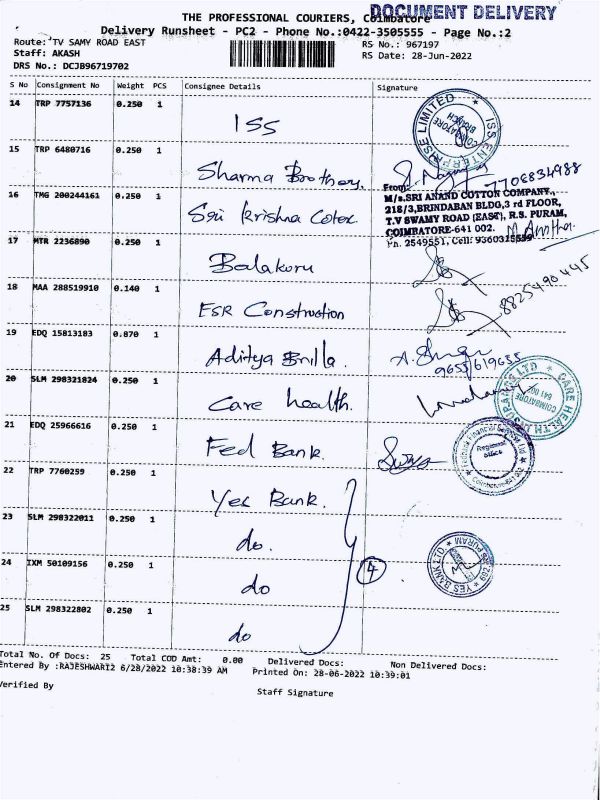 DOCUMENT DELIVERY
THE PROFESSIONAL COURIERS, Coimbatore
Delivery Runsheet - PC2 - Phone No.:0422-3505555 - Page No.:2
Route: TV SAMY ROAD EAST
RS No.: 967197
Staff: AKASH
RS Date: 28-Jun-2022
DRS No.: DCJB96719702
S No Consignment No Weight PCS Consignee Details Signature
14 TRP 7757136 0.250 1 ISS
ISS ENTERPRISE LIMITED
COIMBATORE BRANCH
15 TRP 6480716 0.250 1 Sharma Brothers
7706834988
16 TMG 200244161 0.250 1 Sri Krishna Cotex
From:
M/s.SRI ANAND COTTON COMPANY,
218/3,BRINDABAN BLDG,3 rd FLOOR,
T.V SWAMY ROAD (EAST), R.S. PURAM,
COIMBATORE-641 002.
Ph. 2549551, Cell: 9360315559
17 MTR 2236890 0.250 1 Balakoru
18 MAA 288519910 0.140 1 ESR Construction
8825490445
19 EDQ 15813183 0.870 1 Aditya Birlla.
9655619655
20 SLM 298321824 0.250 1 Care health.
CARE HEALTH INSURANCE LTD
COIMBATORE
641 002
21 EDQ 25966616 0.250 1 Fed Bank.
Regional office
22 TRP 7760259 0.250 1 Yes Bank.
23 SLM 298322011 0.250 1 do.
24 IXM 50109156 0.250 1 do
4
YES BANK LTD
25 SLM 298322802 0.250 1 do
Total No. Of Docs: 25 Total COD Amt: 0.00 Delivered Docs: Non Delivered Docs:
Entered By :RAJESHWARI2 6/28/2022 10:38:39 AM Printed On: 28-06-2022 10:39:01
Verified By
Staff Signature